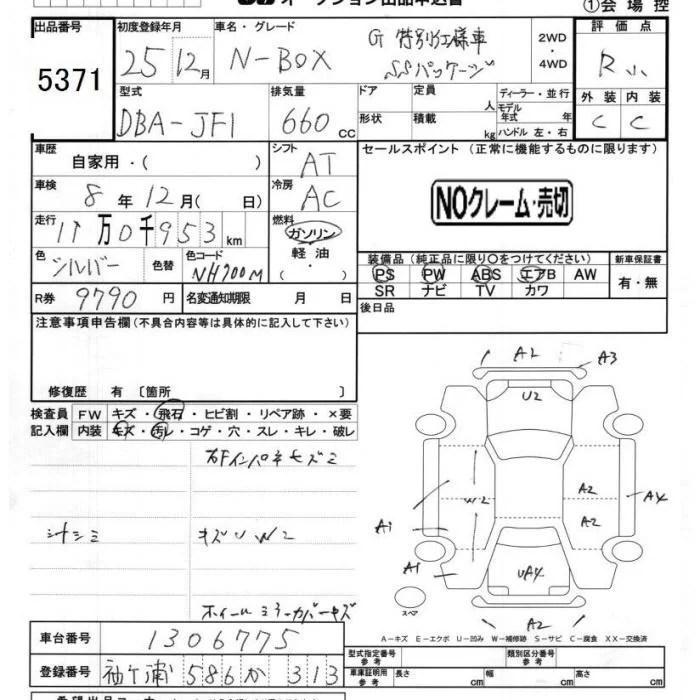 オークション出品申込書
①会場控
出品番号
5371
初度登録年月
25 12月
車名・グレード
N-BOX
G 特別仕様車
SSパッケージ
2WD
・
4WD
評価点
R
外装 内装
C C
型式
DBA-JF1
排気量
660 cc
ドア
形状
定員
人
積載
kg
ディーラー・並行
モデル
年式 年
ハンドル 左・右
車歴
自家用・( )
シフト
AT
セールスポイント (正常に機能するものに限ります)
NOクレーム・売切
車検
8年12月( 日)
冷房
AC
走行
11万0千953km
燃料
ガソリン
軽油
・
( )
色
シルバー
色替
色コード
NH700M
装備品 (純正品に限り○をつけてください)
PS PW ABS エアB AW
SR ナビ TV カワ
新車保証書
有・無
R券 9790円
名変通知期限 月 日
後日品
注意事項申告欄 (不具合内容等は具体的に記入して下さい)
修復歴 有 〔箇所 〕
検査員
記入欄
FW キズ・飛石・ヒビ割・リペア跡・×要
内装 キズ・汚レ・コゲ・穴・スレ・キレ・破レ
右Fインパネキズミ
シートシミ
キズU W2
ホイールミラーカバーキズ
A2
A3
U2
W2
A2
A2
A4
A1
A1
UA4
A2
スペア
A-キズ E-エクボ U-凹み W-補修跡 S-サビ C-腐食 XX-交換済
車台番号 1306775
登録番号 袖ヶ浦 586 か 313
型式指定番号
参考
類別区分番号
参考
車庫証明用
参考
長さ cm
幅 cm
高さ cm
希望出品コーナー